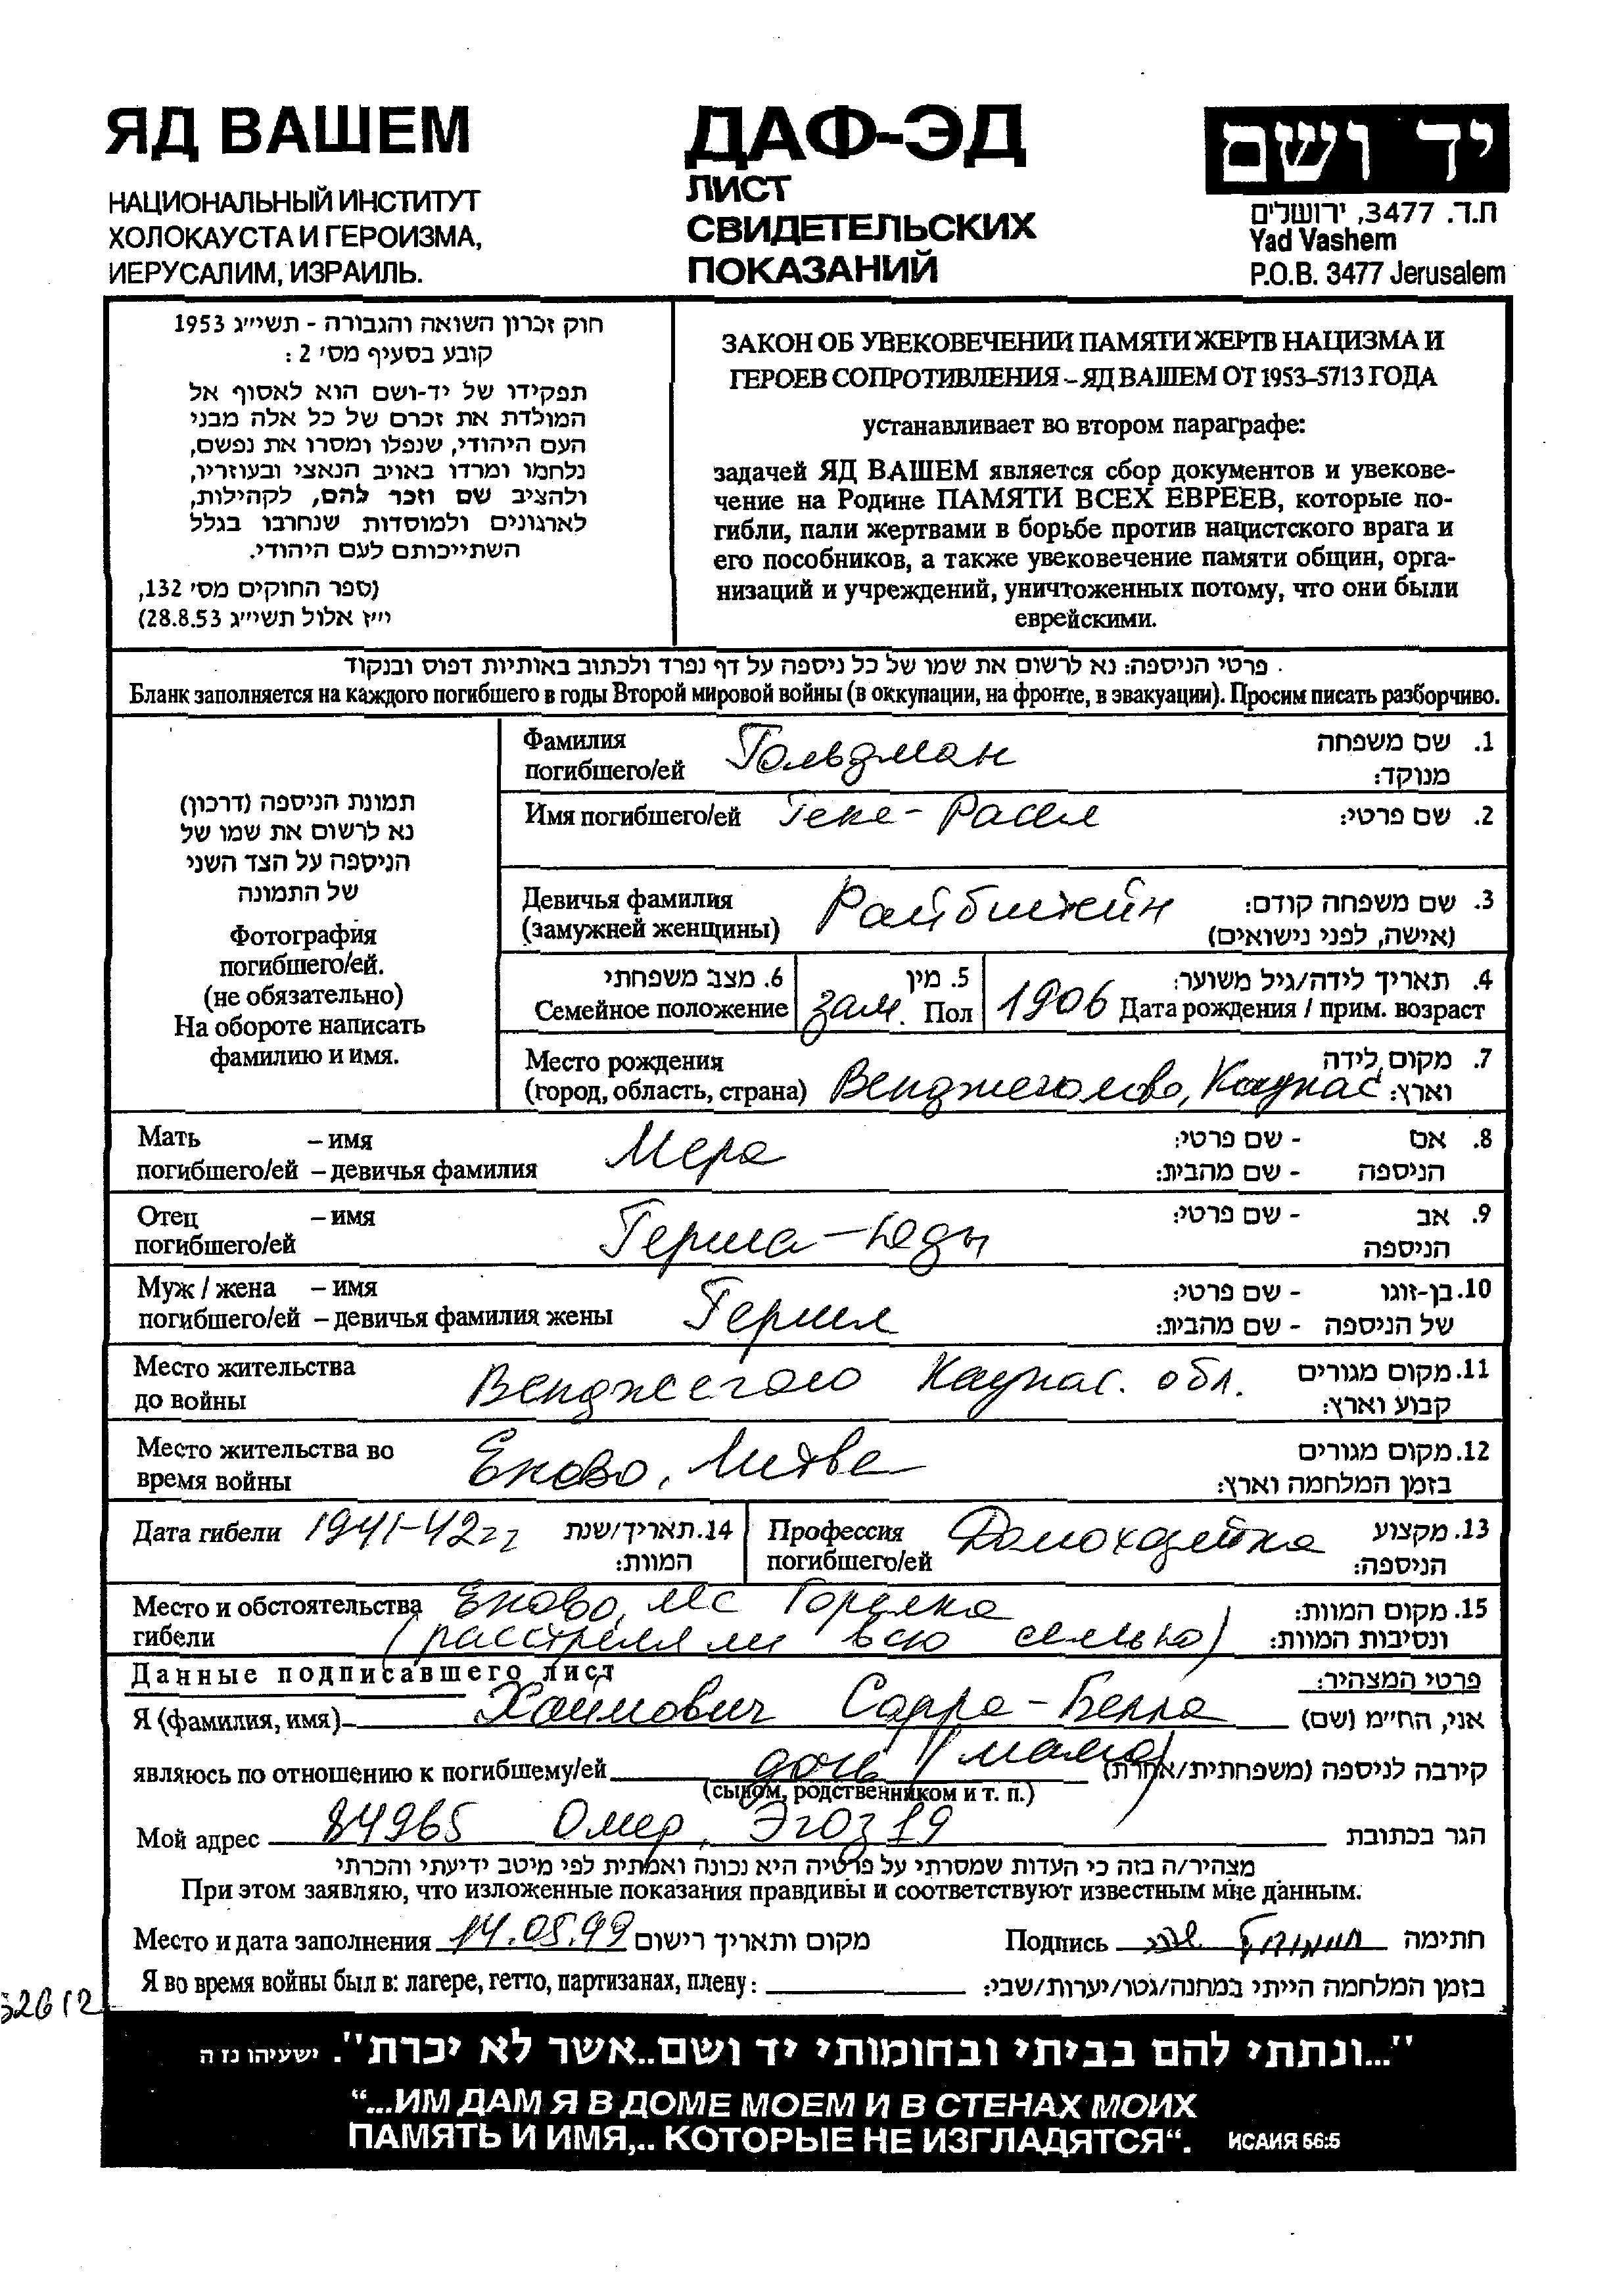 ЯД ВАШЕМ
НАЦИОНАЛЬНЫЙ ИНСТИТУТ
ХОЛОКАУСТА И ГЕРОИЗМА,
ИЕРУСАЛИМ, ИЗРАИЛЬ.
ДАФ-ЭД
ЛИСТ
СВИДЕТЕЛЬСКИХ
ПОКАЗАНИЙ
יד ושם
ת.ד. 3477, ירושלים
Yad Vashem
P.O.B. 3477 Jerusalem
חוק זכרון השואה והגבורה - תשי״ג 1953
קובע בסעיף מס׳ 2 :
תפקידו של יד-ושם הוא לאסוף אל
המולדת את זכרם של כל אלה מבני
העם היהודי, שנפלו ומסרו את נפשם,
נלחמו ומרדו באויב הנאצי ובעוזריו,
ולהציב שם וזכר להם, לקהילות,
לארגונים ולמוסדות שנחרבו בגלל
השתייכותם לעם היהודי.
(ספר החוקים מס׳ 132,
י״ז אלול תשי״ג 28.8.53)
ЗАКОН ОБ УВЕКОВЕЧЕНИИ ПАМЯТИ ЖЕРТВ НАЦИЗМА И
ГЕРОЕВ СОПРОТИВЛЕНИЯ – ЯД ВАШЕМ ОТ 1953-5713 ГОДА
устанавливает во втором параграфе:
задачей ЯД ВАШЕМ является сбор документов и увекове-
чение на Родине ПАМЯТИ ВСЕХ ЕВРЕЕВ, которые по-
гибли, пали жертвами в борьбе против нацистского врага и
его пособников, а также увековечение памяти общин, орга-
низаций и учреждений, уничтоженных потому, что они были
еврейскими.
פרטי הניספה: נא לרשום את שמו של כל ניספה על דף נפרד ולכתוב באותיות דפוס ובנקוד
Бланк заполняется на каждого погибшего в годы Второй мировой войны (в оккупации, на фронте, в эвакуации). Просим писать разборчиво.
תמונת הניספה (דרכון)
נא לרשום את שמו של
הניספה על הצד השני
של התמונה
Фотография
погибшего/ей.
(не обязательно)
На обороте написать
фамилию и имя.
Фамилия Гольдман 1. שם משפחה
погибшего/ей מנוקד:
Имя погибшего/ей Геке-Расел 2. שם פרטי:
Девичья фамилия Райбштейн 3. שם משפחה קודם:
(замужней женщины) (אישה, לפני נישואים)
6. מצב משפחתי 5. מין 4. תאריך לידה/גיל משוער:
Семейное положение зам. Пол 1906 Дата рождения / прим. возраст
Место рождения 7. מקום לידה
(город, область, страна) Венджеголово, Каунас וארץ:
Мать – имя Мера 8. אם - שם פרטי:
погибшего/ей – девичья фамилия הניספה - שם מהבית:
Отец – имя Герша-Юды 9. אב - שם פרטי:
погибшего/ей הניספה
Муж / жена – имя Гершл 10. בן-זוגו - שם פרטי:
погибшего/ей – девичья фамилия жены של הניספה - שם מהבית:
Место жительства Венджеголо Каунас. обл. 11. מקום מגורים
до войны קבוע וארץ:
Место жительства во Еново, Литва 12. מקום מגורים
время войны בזמן המלחמה וארץ:
Дата гибели 1941-42гг 14. תאריך/שנת
המוות:
Профессия Домохозяйка 13. מקצוע
погибшего/ей הניספה:
Место и обстоятельства Еново, мс Горалка 15. מקום המוות:
гибели (расстреляли всю семью) ונסיבות המוות:
Данные подписавшего лист פרטי המצהיר:
Я (фамилия, имя) Хаймович Сарра-Белла אני, הח״מ (שם)
являюсь по отношению к погибшему/ей дочь (мама) קירבה לניספה (משפחתית/אחרת)
(сыном, родственником и т. п.)
Мой адрес 84965 Омер, Эгоз 19 הגר בכתובת
מצהיר/ה בזה כי העדות שמסרתי על פרטיה היא נכונה ואמתית לפי מיטב ידיעתי והכרתי
При этом заявляю, что изложенные показания правдивы и соответствуют известным мне данным.
Место и дата заполнения 14.05.99 מקום ותאריך רישום Подпись חתימה
Я во время войны был в: лагере, гетто, партизанах, плену: בזמן המלחמה הייתי במחנה/גטו/יערות/שבי:
32612
"...ונתתי להם בביתי ובחומותי יד ושם..אשר לא יכרת". ישעיהו נז ה
“...ИМ ДАМ Я В ДОМЕ МОЕМ И В СТЕНАХ МОИХ
ПАМЯТЬ И ИМЯ,.. КОТОРЫЕ НЕ ИЗГЛАДЯТСЯ“. ИСАИЯ 56:5